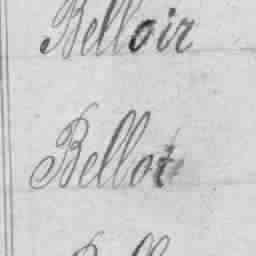 Belloir
Bellot